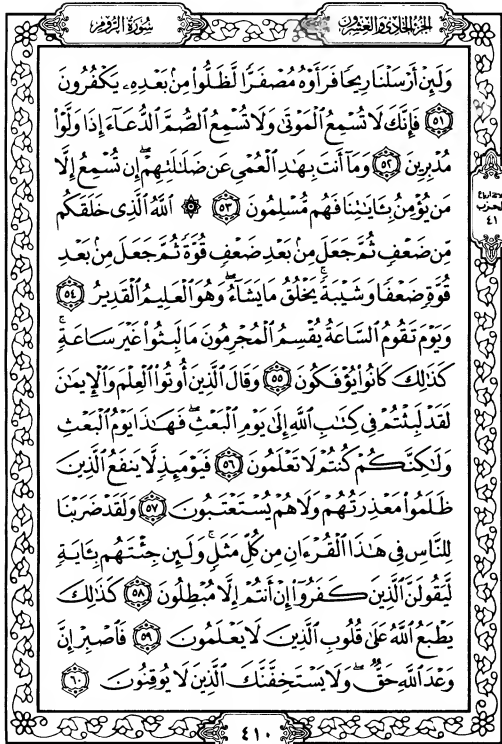 الجزء الحادي والعشرون
سورة الروم
وَلَئِنْ أَرْسَلْنَا رِيحًا فَرَأَوْهُ مُصْفَرًّا لَّظَلُّوا۟ مِنۢ بَعْدِهِۦ يَكْفُرُونَ
﴿٥١﴾ فَإِنَّكَ لَا تُسْمِعُ ٱلْمَوْتَىٰ وَلَا تُسْمِعُ ٱلصُّمَّ ٱلدُّعَآءَ إِذَا وَلَّوْا۟
مُدْبِرِينَ ﴿٥٢﴾ وَمَآ أَنتَ بِهَٰدِ ٱلْعُمْىِ عَن ضَلَٰلَتِهِمْ ۖ إِن تُسْمِعُ إِلَّا
مَن يُؤْمِنُ بِـَٔايَٰتِنَا فَهُم مُّسْلِمُونَ ﴿٥٣﴾ ۞ ٱللَّهُ ٱلَّذِى خَلَقَكُم
مِّن ضَعْفٍ ثُمَّ جَعَلَ مِنۢ بَعْدِ ضَعْفٍ قُوَّةً ثُمَّ جَعَلَ مِنۢ بَعْدِ
قُوَّةٍ ضَعْفًا وَشَيْبَةً ۚ يَخْلُقُ مَا يَشَآءُ ۖ وَهُوَ ٱلْعَلِيمُ ٱلْقَدِيرُ ﴿٥٤﴾
وَيَوْمَ تَقُومُ ٱلسَّاعَةُ يُقْسِمُ ٱلْمُجْرِمُونَ مَا لَبِثُوا۟ غَيْرَ سَاعَةٍ ۚ
كَذَٰلِكَ كَانُوا۟ يُؤْفَكُونَ ﴿٥٥﴾ وَقَالَ ٱلَّذِينَ أُوتُوا۟ ٱلْعِلْمَ وَٱلْإِيمَٰنَ
لَقَدْ لَبِثْتُمْ فِى كِتَٰبِ ٱللَّهِ إِلَىٰ يَوْمِ ٱلْبَعْثِ ۖ فَهَٰذَا يَوْمُ ٱلْبَعْثِ
وَلَٰكِنَّكُمْ كُنتُمْ لَا تَعْلَمُونَ ﴿٥٦﴾ فَيَوْمَئِذٍ لَّا يَنفَعُ ٱلَّذِينَ
ظَلَمُوا۟ مَعْذِرَتُهُمْ وَلَا هُمْ يُسْتَعْتَبُونَ ﴿٥٧﴾ وَلَقَدْ ضَرَبْنَا
لِلنَّاسِ فِى هَٰذَا ٱلْقُرْءَانِ مِن كُلِّ مَثَلٍ ۚ وَلَئِن جِئْتَهُم بِـَٔايَةٍ
لَّيَقُولَنَّ ٱلَّذِينَ كَفَرُوٓا۟ إِنْ أَنتُمْ إِلَّا مُبْطِلُونَ ﴿٥٨﴾ كَذَٰلِكَ
يَطْبَعُ ٱللَّهُ عَلَىٰ قُلُوبِ ٱلَّذِينَ لَا يَعْلَمُونَ ﴿٥٩﴾ فَٱصْبِرْ إِنَّ
وَعْدَ ٱللَّهِ حَقٌّ ۖ وَلَا يَسْتَخِفَّنَّكَ ٱلَّذِينَ لَا يُوقِنُونَ ﴿٦٠﴾
الحزب
٤١
٤١٠